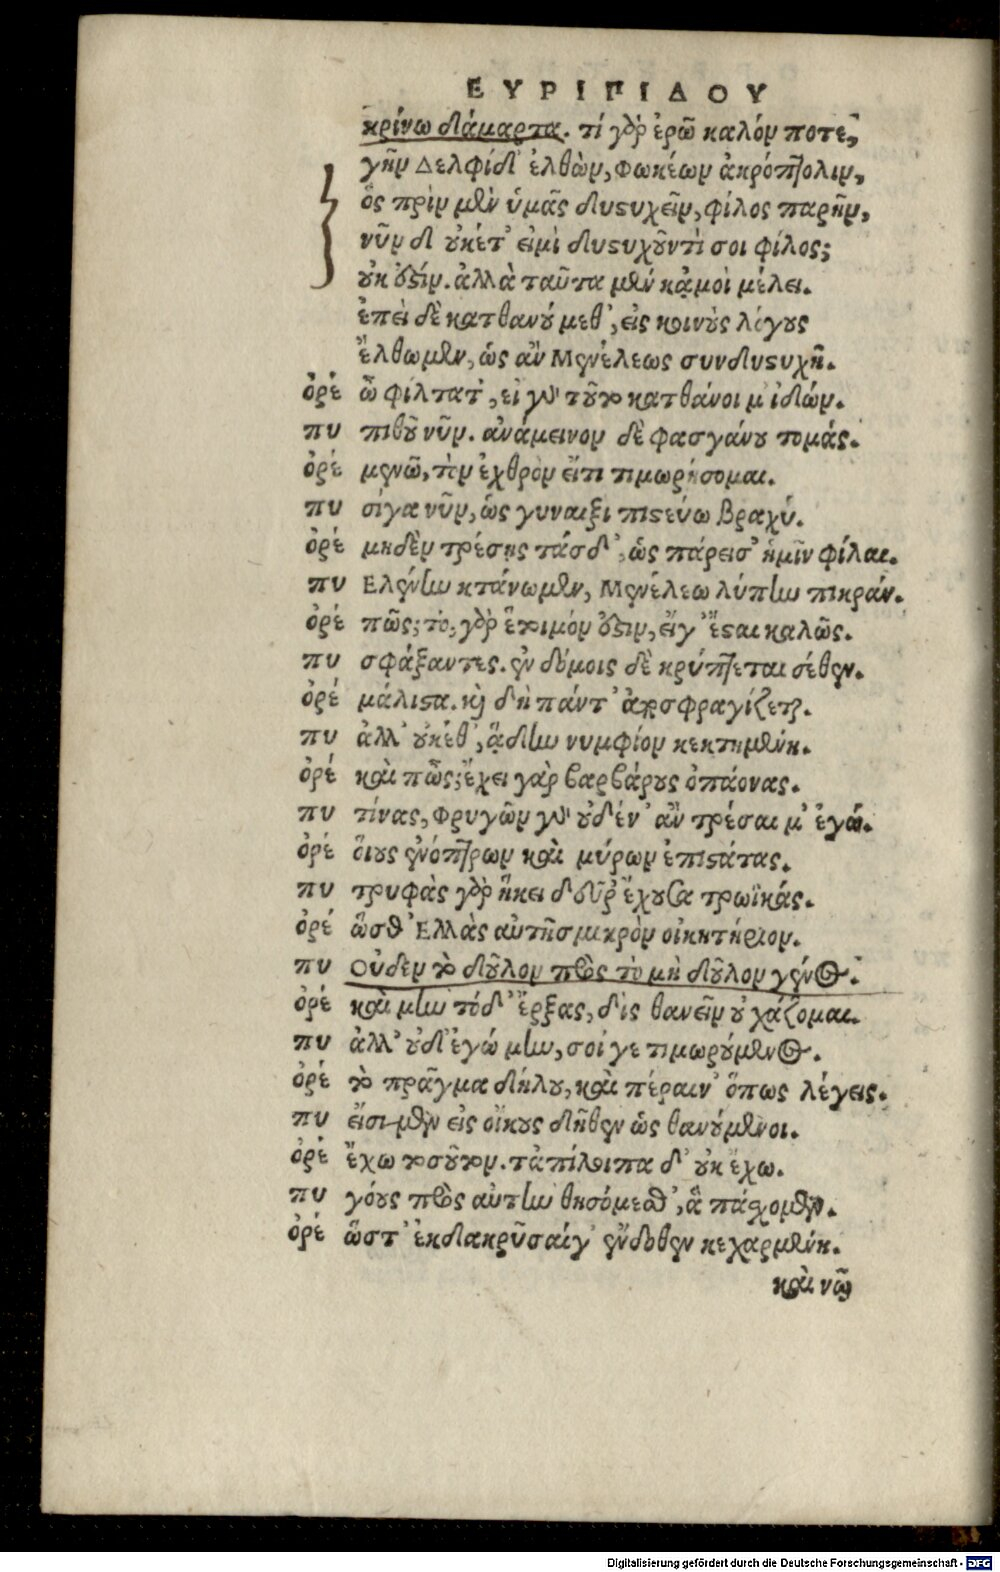 ΕΥΡΙΠΙΔΟΥ
κρίνω δάμαρτα. τί γὰρ ἐρῶ καλόν ποτε,
γῆν Δελφίδ' ἐλθὼν, Φωκέων ἀκρόπτολιν,
ὃς πρὶν μὲν ὑμᾶς δυστυχεῖν, φίλος παρῆν,
νῦν δ' οὐκέτ' εἰμὶ δυστυχοῦντί σοι φίλος;
οὐκ ἔστιν. ἀλλὰ ταῦτα μὲν κᾀμοὶ μέλει.
ἐπεὶ δὲ κατθανούμεθ', εἰς κοινοὺς λόγους
ἔλθωμεν, ὡς ἂν Μενέλεως συνδυστυχῇ.
ὀρέ ὦ φίλτατ', εἰ γὰρ τοῦτο κατθάνοιμ' ἰδών.
πυ πιθοῦ νῦν. ἀνάμεινον δὲ φασγάνου τομάς.
ὀρέ μενῶ, τὸν ἐχθρὸν εἴ τι τιμωρήσομαι.
πυ σίγα νῦν, ὡς γυναιξὶ πιστεύω βραχύ.
ὀρέ μηδὲν τρέσῃς τάσδ', ὡς πάρεισ' ἡμῖν φίλαι.
πυ Ελένην κτάνωμεν, Μενέλεω λύπην πικράν.
ὀρέ πῶς; τὸ, γὰρ ἕτοιμόν ἐστιν, εἴγ' ἔσται καλῶς.
πυ σφάξαντες. ἐν δόμοις δὲ κρύπτεται σέθεν.
ὀρέ μάλιστα. καὶ δὴ πάντ' ἀποσφραγίζεται.
πυ ἀλλ' οὐκέθ', ᾅδην νυμφίον κεκτημένη.
ὀρέ καὶ πῶς; ἔχει γὰρ βαρβάρους ὀπάονας.
πυ τίνας, Φρυγῶν γὰρ οὐδέν' ἂν τρέσαιμ' ἐγώ.
ὀρέ οἵους ἐνόπτρων καὶ μύρων ἐπιστάτας.
πυ τρυφὰς γὰρ ἥκει δεῦρ' ἔχουσα τρωϊκάς.
ὀρέ ὥσθ' Ἑλλὰς αὐτῇ σμικρὸν οἰκητήριον.
πυ Οὐδὲν τὸ δοῦλον πρὸς τὸ μὴ δοῦλον γένος.
ὀρέ καὶ μὴν τόδ' ἔρξας, δὶς θανεῖν οὐ χάζομαι.
πυ ἀλλ' οὐδ' ἐγώ μὴν, σοί γε τιμωρούμενος.
ὀρέ τὸ πρᾶγμα δήλου, καὶ πέραιν' ὅπως λέγεις.
πυ εἴσιμεν εἰς οἴκους δῆθεν ὡς θανούμενοι.
ὀρέ ἔχω τοσοῦτον. τἀπίλοιπα δ' οὐκ ἔχω.
πυ γόους πρὸς αὐτὴν θησόμεσθ', ἃ πάσχομεν.
ὀρέ ὥστ' ἐκδακρῦσαί γ' ἔνδοθεν κεχαρμένη.
καὶ νῷ
Digitalisierung gefördert durch die Deutsche Forschungsgemeinschaft - DFG